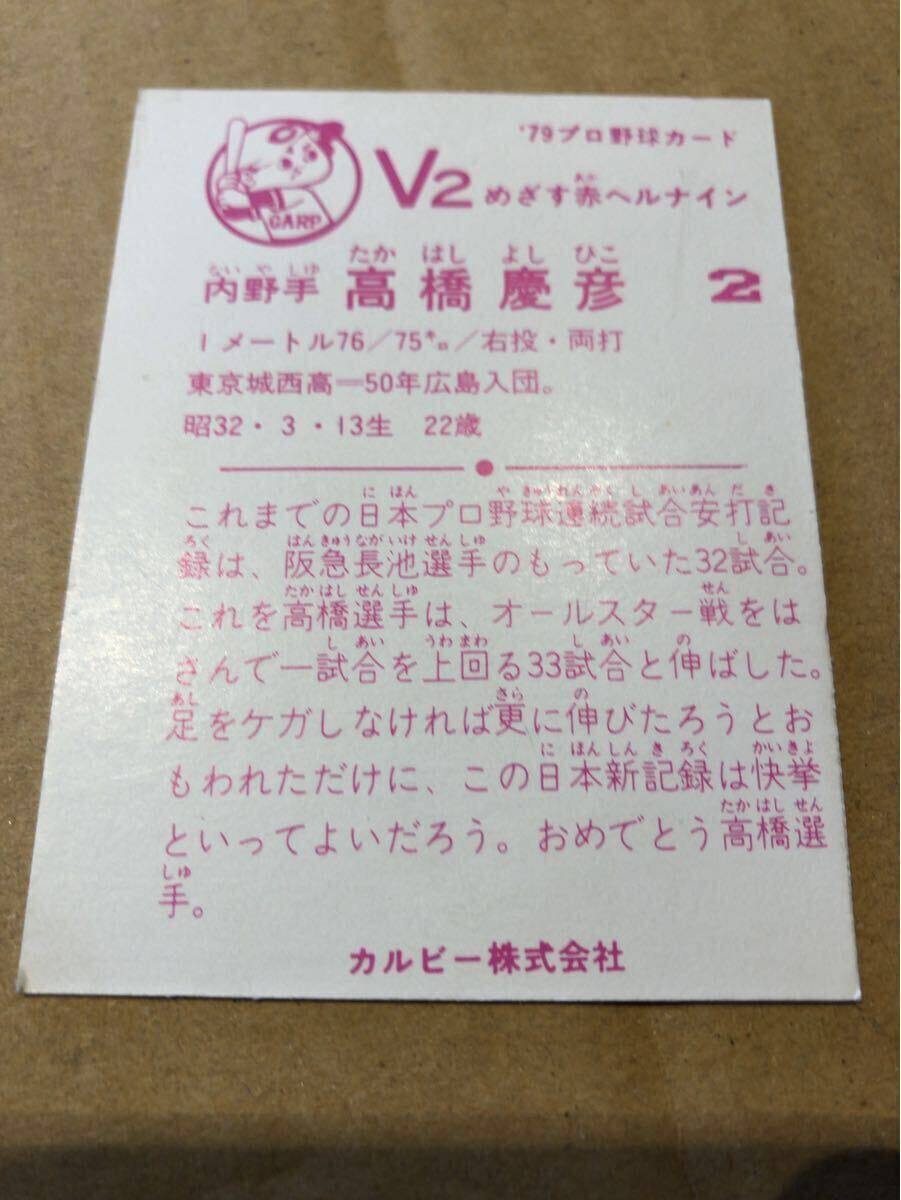 '79プロ野球カード
CARP
V2 めざす赤ヘルナイン
内野手 高橋慶彦 2
1メートル76/75㌔/右投・両打
東京城西高=50年広島入団。
昭32・3・13生 22歳
これまでの日本プロ野球連続試合安打記
録は、阪急長池選手のもっていた32試合。
これを高橋選手は、オールスター戦をは
さんで一試合を上回る33試合と伸ばした。
足をケガしなければ更に伸びたろうとお
もわれただけに、この日本新記録は快挙
といってよいだろう。おめでとう高橋選
手。
カルビー株式会社